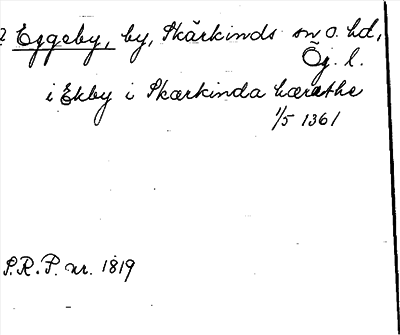 ? Eggeby, by, Skärkinds sn o. hd,
Ög. l.
i Ekby i Skærkinda hæræthe
1/5 1361
S.R.P. nr. 1819